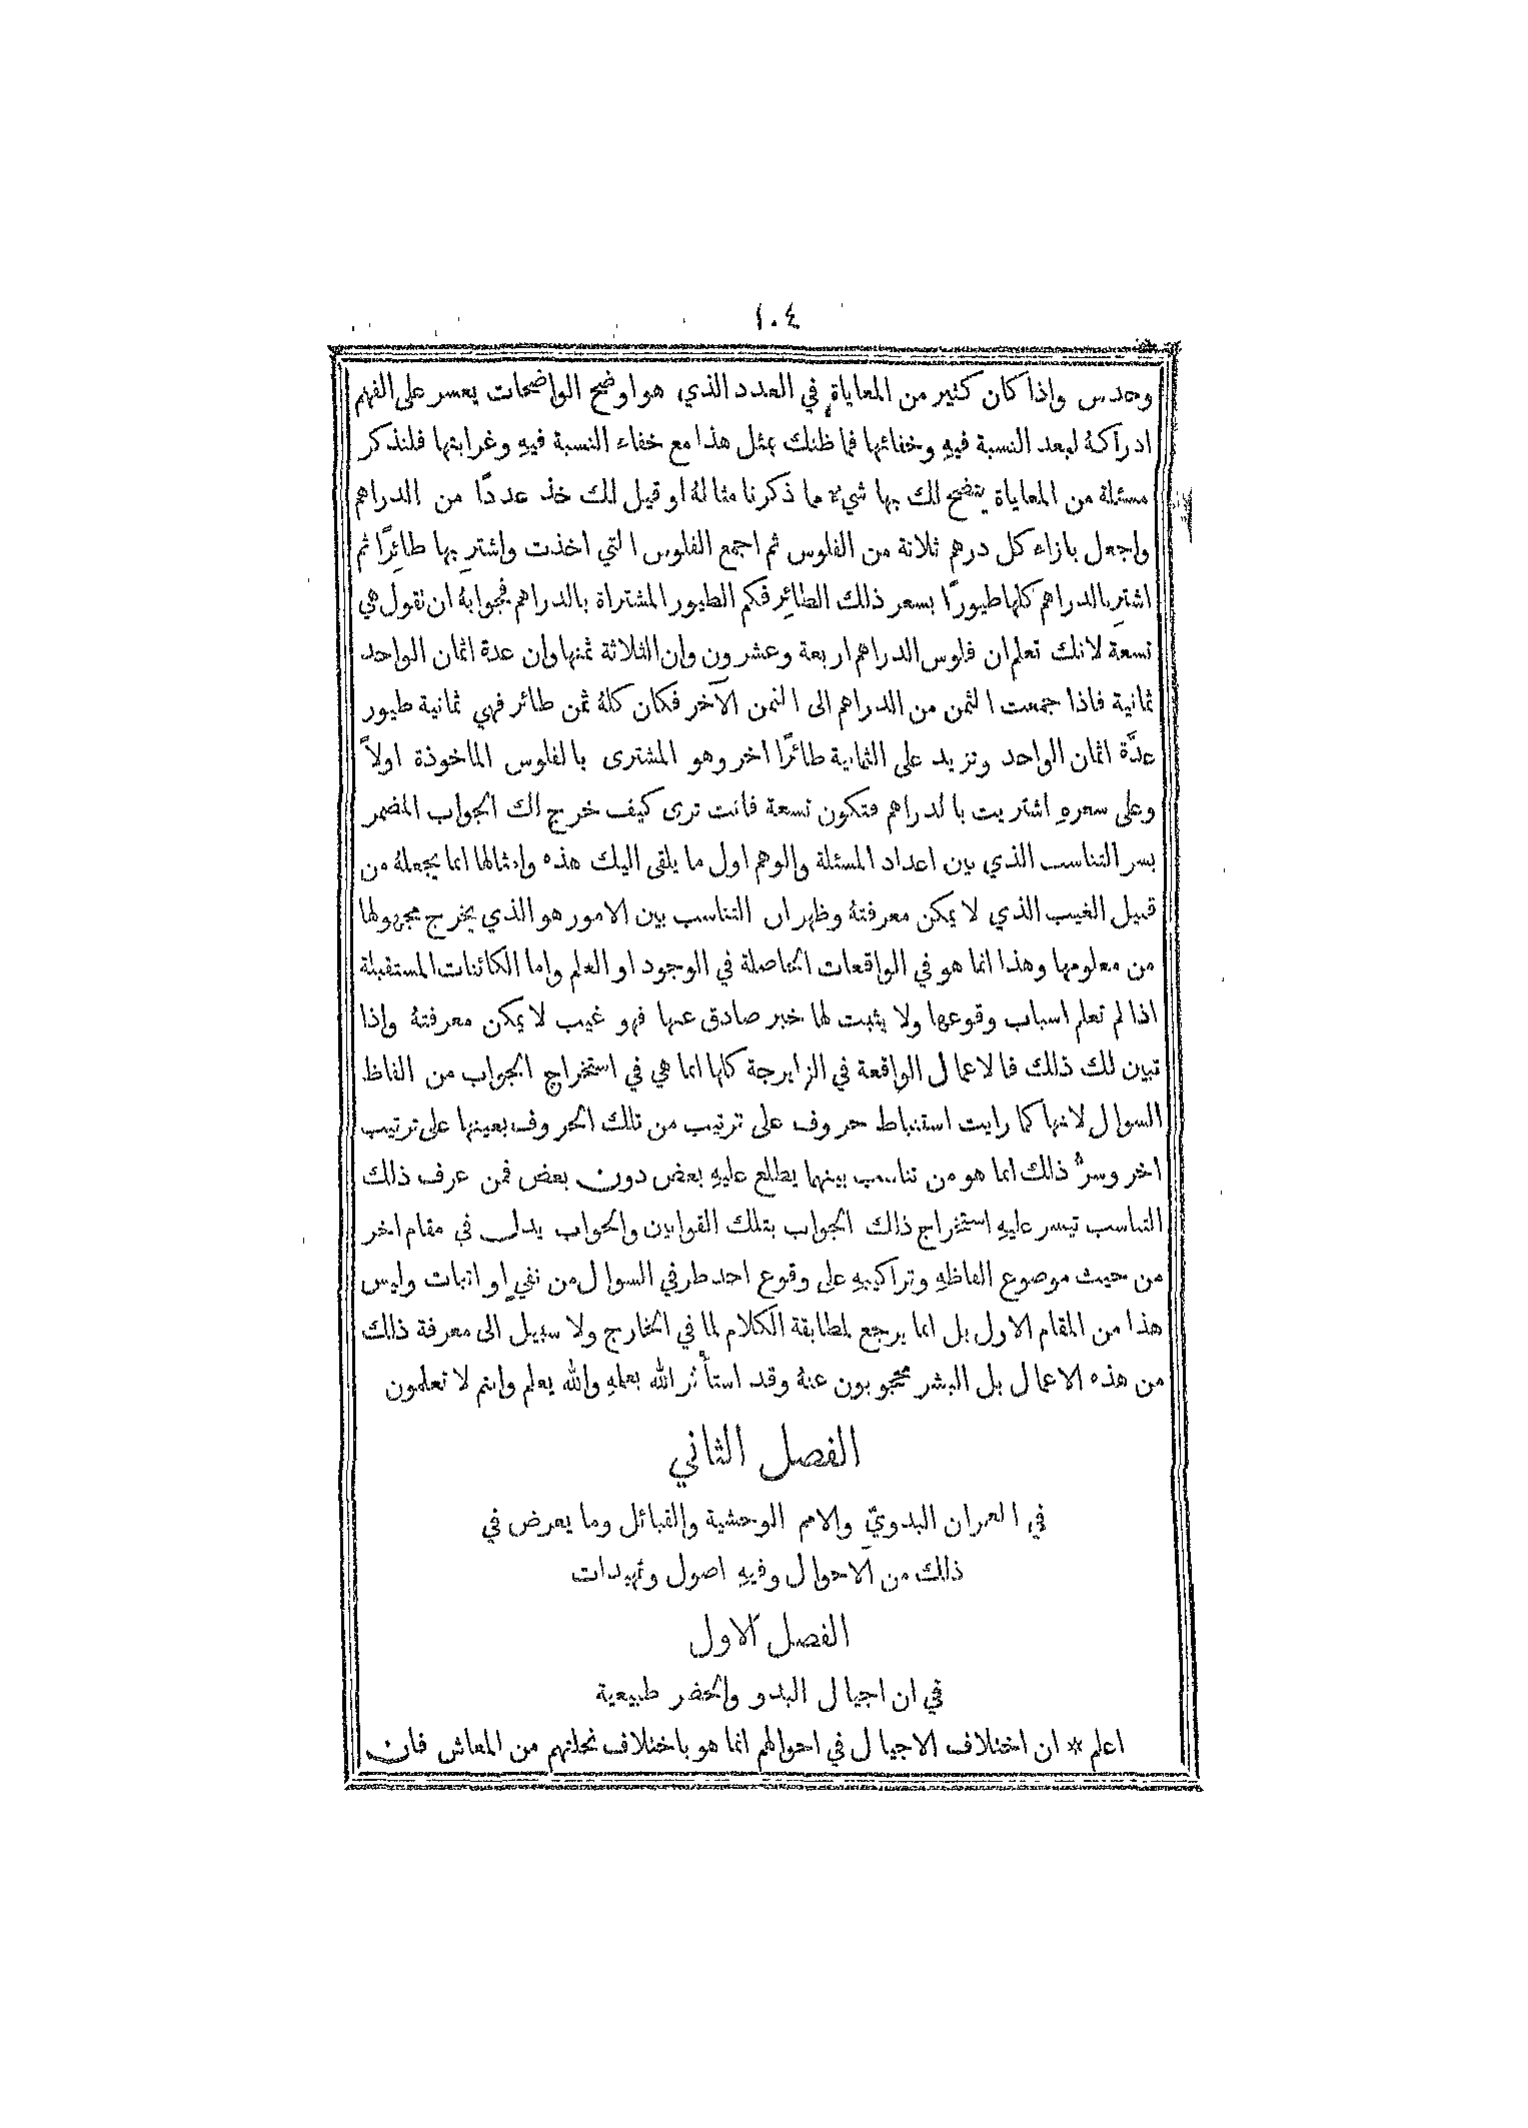 ١٠٤
وحدس واذا كان كثير من المعاياة في العدد الذي هو اوضح الواضحات يعسر على الفهم
ادراكهُ لبعد النسبة فيهِ وخفائها فما ظنك بمثل هذا مع خفاء النسبة فيهِ وغرابتها فلنذكر
مسئلة من المعاياة يتضح لك بها شيءٌ مما ذكرنا مثالهُ او قيل لك خذ عددًا من الدراهم
واجعل بازاء كل درهم ثلاثة من الفلوس ثم اجمع الفلوس التي اخذت واشترِ بها طائِرًا ثم
اشترِ بالدراهم كلها طيورًا بسعر ذلك الطائِر فكم الطيور المشتراة بالدراهم فجوابهُ ان تقول هي
تسعة لانك تعلم ان فلوس الدراهم اربعة وعشرون وان الثلاثة ثمنها وان عدة اثمان الواحد
ثمانية فاذا جمعت الثمن من الدراهم الى الثمن الآخر فكان كلهُ ثمن طائر فهي ثمانية طيور
عدَّة اثمان الواحد وتزيد على الثمانية طائرًا اخر وهو المشترى بالفلوس الماخوذة اولاً
وعلى سعرهِ اشتريت بالدراهم فتكون تسعة فانت ترى كيف خرج لك الجواب المضمر
بسر التناسب الذي بين اعداد المسئلة والوهم اول ما يلقى اليك هذه وامثالها انما يجعلهُ من
قبيل الغيب الذي لا يمكن معرفتهُ وظهر ان التناسب بين الامور هو الذي يخرج مجهولها
من معلومها وهذا انما هو في الواقعات الحاصلة في الوجود او العلم واما الكائنات المستقبلة
اذا لم تعلم اسباب وقوعها ولا يثبت لها خبر صادق عنها فهو غيب لا يمكن معرفتهُ واذا
تبين لك ذلك فالاعمال الواقعة في الزايرجة كلها انما هي في استخراج الجواب من الفاظ
السوال لانها كما رايت استنباط حروف على ترتيب من تلك الحروف بعينها على ترتيب
اخر وسرُّ ذلك انما هو من تناسب بينهما يطلع عليهِ بعض دون بعض فمن عرف ذلك
التناسب تيسر عليهِ استخراج ذلك الجواب بتلك القوانين والجواب يدل في مقام اخر
من حيث موضوع الفاظهِ وتراكيبهِ على وقوع احد طرفي السوال من نفيٍ او اثبات وليس
هذا من المقام الاول بل انما يرجع لمطابقة الكلام لما في الخارج ولا سبيل الى معرفة ذلك
من هذه الاعمال بل البشر محجوبون عنهُ وقد استأثر الله بعلمهِ والله يعلم وانتم لا تعلمون
الفصل الثاني
في العمران البدويّ والامم الوحشية والقبائل وما يعرض في
ذلك من الاحوال وفيهِ اصول وتمهيدات
الفصل الاول
في ان اجيال البدو والحضر طبيعية
اعلم * ان اختلاف الاجيال في احوالهم انما هو باختلاف نحلتهم من المعاش فان